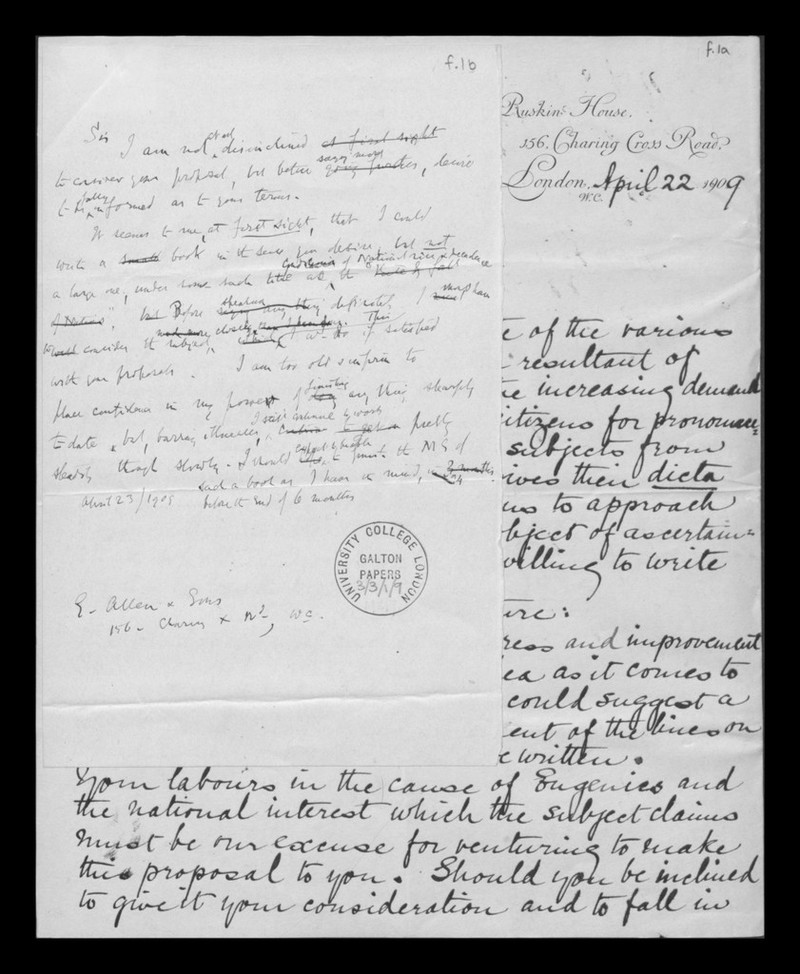 f.1b
Sir I am not disinclined at first sight
to consider your proposal, but before going further, desire
to be fully informed as to your terms.
It seems to me, at first sight, that I could
write a small book in the sense you desire, but not
a large one, under some such title as the
before
consider the subject, if satisfied
with your proposals. I am too old & infirm to
place confidence in my power of finishing any thing sharply
to date, but, barring illnesses, I still pretty
steadily though slowly. I should the MS of
such a book as I have in mind, in
before the end of 6 months
April 23/1909
UNIVERSITY COLLEGE LONDON
GALTON
PAPERS
3/3/1/9
G. Allen & Sons
156 - Charing X Rd, WC.
f.1a
Ruskin House,
156, Charing Cross Road,
London, April 22 1909
W.C.
e of the various
resultant of
he increasing demand
itizens for pronounce=
subjects from
ives their dicta
us to approach
bject of ascertain=
willing to write
ure:
ress and improvement
ea as it comes to
could suggest a
ent of the lines on
e written.
Your labours in the cause of Eugenics and
the national interest which the subject claims
must be our excuse for venturing to make
this proposal to you. Should you be inclined
to give it your consideration and to fall in